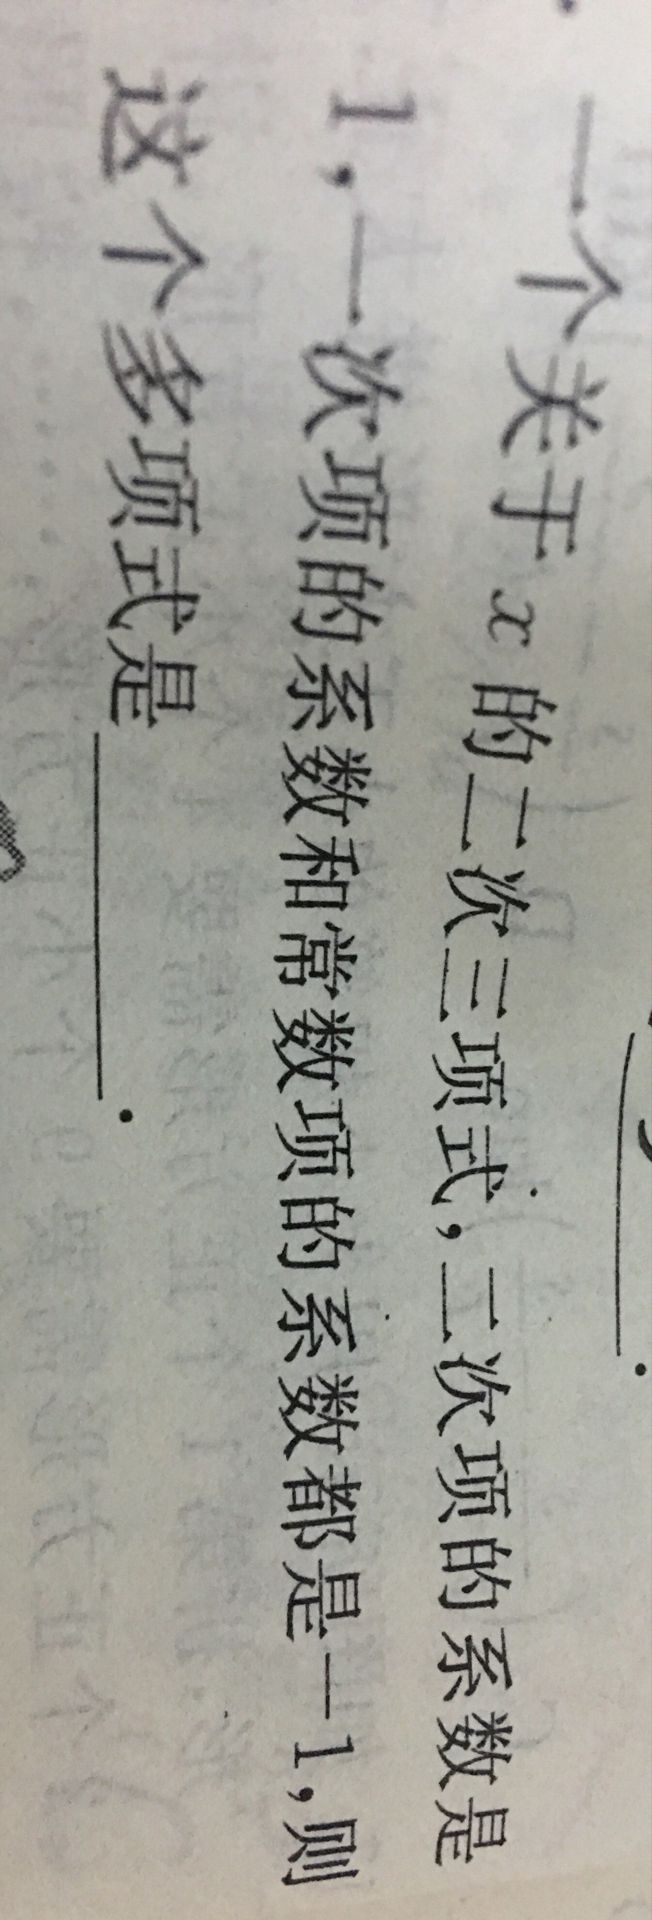 一个关于x的二次三项式,二次项的系数是
1,一次项的系数和常数项的系数都是-1,则
这个多项式是________.